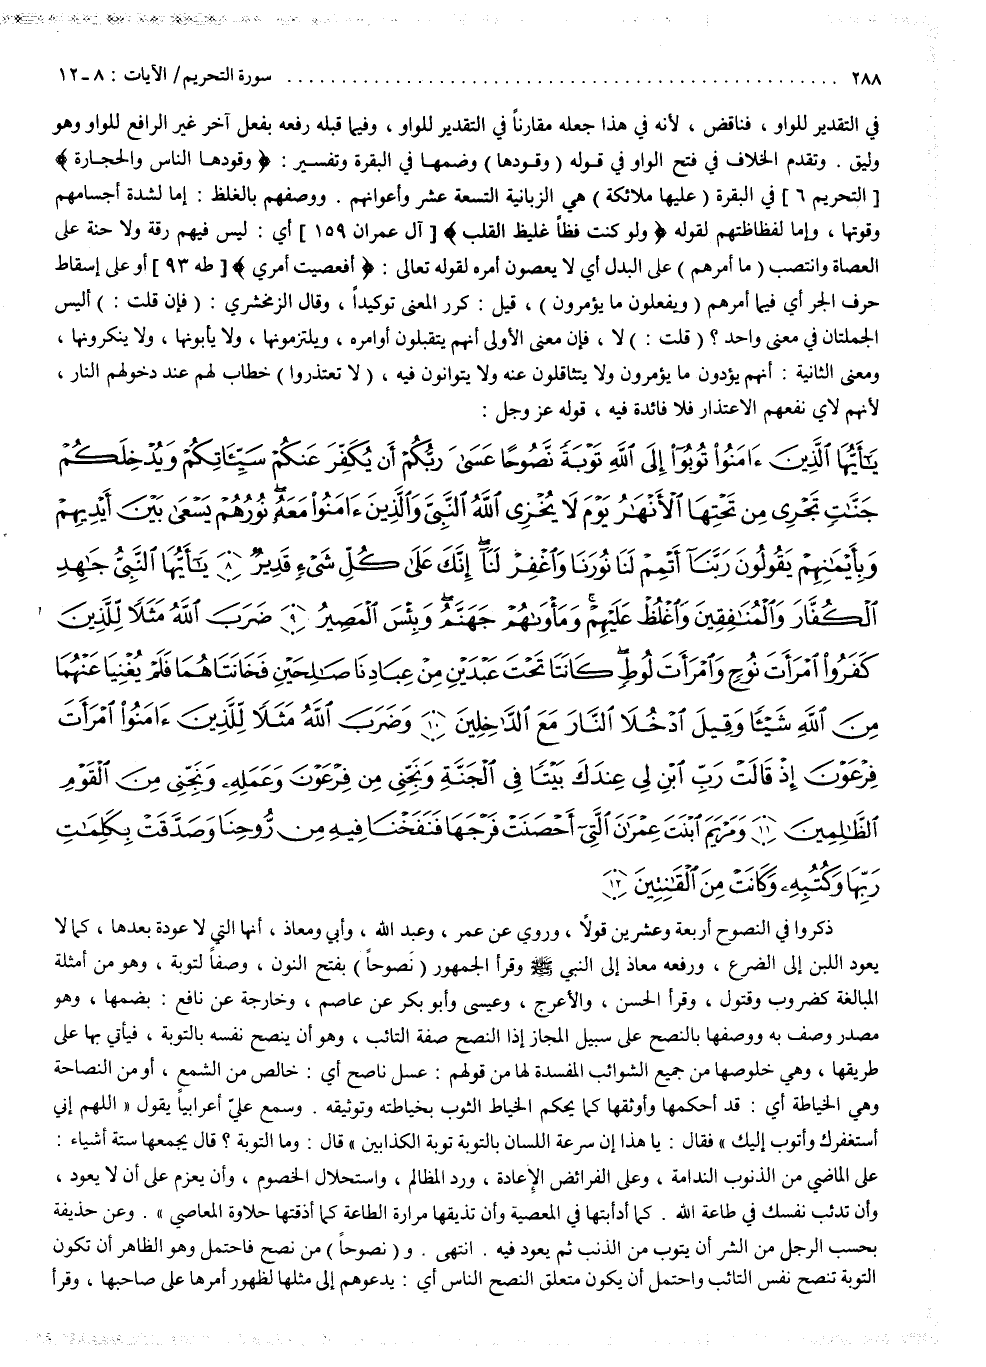 ٢٨٨ ........................................................ سورة التحريم/ الآيات : ٨ـ١٢
في التقدير للواو ، فناقض ، لأنه في هذا جعله مقارناً في التقدير للواو ، وفيما قبله رفعه بفعل آخر غير الرافع للواو وهو
وليق . وتقدم الخلاف في فتح الواو في قوله ( وقودها ) وضمها في البقرة وتفسير : ﴿ وقودها الناس والحجارة ﴾
[ التحريم ٦ ] في البقرة ( عليها ملائكة ) هي الزبانية التسعة عشر وأعوانهم . ووصفهم بالغلظ : إما لشدة أجسامهم
وقوتها ، وإما لفظاظتهم لقوله ﴿ ولو كنت فظاً غليظ القلب ﴾ [ آل عمران ١٥٩ ] أي : ليس فيهم رقة ولا حنة على
العصاة وانتصب ( ما أمرهم ) على البدل أي لا يعصون أمره لقوله تعالى : ﴿ أفعصيت أمري ﴾ [ طه ٩٣ ] أو على إسقاط
حرف الجر أي فيما أمرهم ( ويفعلون ما يؤمرون ) ، قيل : كرر المعنى توكيداً ، وقال الزمخشري : ( فإن قلت : ) أليس
الجملتان في معنى واحد ؟ ( قلت : ) لا ، فإن معنى الأولى أنهم يتقبلون أوامره ، ويلتزمونها ، ولا يأبونها ، ولا ينكرونها ،
ومعنى الثانية : أنهم يؤدون ما يؤمرون ولا يتثاقلون عنه ولا يتوانون فيه ، ( لا تعتذروا ) خطاب لهم عند دخولهم النار ،
لأنهم لاي نفعهم الاعتذار فلا فائدة فيه ، قوله عز وجل :
يَٰٓأَيُّهَا ٱلَّذِينَ ءَامَنُوا۟ تُوبُوٓا۟ إِلَى ٱللَّهِ تَوْبَةً نَّصُوحًا عَسَىٰ رَبُّكُمْ أَن يُكَفِّرَ عَنكُمْ سَيِّـَٔاتِكُمْ وَيُدْخِلَكُمْ
جَنَّٰتٍ تَجْرِى مِن تَحْتِهَا ٱلْأَنْهَٰرُ يَوْمَ لَا يُخْزِى ٱللَّهُ ٱلنَّبِىَّ وَٱلَّذِينَ ءَامَنُوا۟ مَعَهُۥ ۖ نُورُهُمْ يَسْعَىٰ بَيْنَ أَيْدِيهِمْ
وَبِأَيْمَٰنِهِمْ يَقُولُونَ رَبَّنَآ أَتْمِمْ لَنَا نُورَنَا وَٱغْفِرْ لَنَآ ۖ إِنَّكَ عَلَىٰ كُلِّ شَىْءٍ قَدِيرٌ ﴿٨﴾ يَٰٓأَيُّهَا ٱلنَّبِىُّ جَٰهِدِ
ٱلْكُفَّارَ وَٱلْمُنَٰفِقِينَ وَٱغْلُظْ عَلَيْهِمْ ۚ وَمَأْوَىٰهُمْ جَهَنَّمُ ۖ وَبِئْسَ ٱلْمَصِيرُ ﴿٩﴾ ضَرَبَ ٱللَّهُ مَثَلًا لِّلَّذِينَ
كَفَرُوا۟ ٱمْرَأَتَ نُوحٍ وَٱمْرَأَتَ لُوطٍ ۖ كَانَتَا تَحْتَ عَبْدَيْنِ مِنْ عِبَادِنَا صَٰلِحَيْنِ فَخَانَتَاهُمَا فَلَمْ يُغْنِيَا عَنْهُمَا
مِنَ ٱللَّهِ شَيْـًٔا وَقِيلَ ٱدْخُلَا ٱلنَّارَ مَعَ ٱلدَّٰخِلِينَ ﴿١٠﴾ وَضَرَبَ ٱللَّهُ مَثَلًا لِّلَّذِينَ ءَامَنُوا۟ ٱمْرَأَتَ
فِرْعَوْنَ إِذْ قَالَتْ رَبِّ ٱبْنِ لِى عِندَكَ بَيْتًا فِى ٱلْجَنَّةِ وَنَجِّنِى مِن فِرْعَوْنَ وَعَمَلِهِۦ وَنَجِّنِى مِنَ ٱلْقَوْمِ
ٱلظَّٰلِمِينَ ﴿١١﴾ وَمَرْيَمَ ٱبْنَتَ عِمْرَٰنَ ٱلَّتِىٓ أَحْصَنَتْ فَرْجَهَا فَنَفَخْنَا فِيهِ مِن رُّوحِنَا وَصَدَّقَتْ بِكَلِمَٰتِ
رَبِّهَا وَكُتُبِهِۦ وَكَانَتْ مِنَ ٱلْقَٰنِتِينَ ﴿١٢﴾
ذكروا في النصوح أربعة وعشرين قولاً ، وروي عن عمر ، وعبد الله ، وأبي ومعاذ ، أنها التي لا عودة بعدها ، كما لا
يعود اللبن إلى الضرع ، ورفعه معاذ إلى النبي ﷺ وقرأ الجمهور ( نَصوحاً ) بفتح النون ، وصفاً لتوبة ، وهو من أمثلة
المبالغة كضروب وقتول ، وقرأ الحسن ، والأعرج ، وعيسى وأبو بكر عن عاصم ، وخارجة عن نافع : بضمها ، وهو
مصدر وصف به ووصفها بالنصح على سبيل المجاز إذا النصح صفة التائب ، وهو أن ينصح نفسه بالتوبة ، فيأتي بها على
طريقها ، وهي خلوصها من جميع الشوائب المفسدة لها من قولهم : عسل ناصح أي : خالص من الشمع ، أو من النصاحة
وهي الخياطة أي : قد أحكمها وأوثقها كما يحكم الخياط الثوب بخياطته وتوثيقه . وسمع عليّ أعرابياً يقول « اللهم إني
أستغفرك وأتوب إليك » فقال : يا هذا إن سرعة اللسان بالتوبة توبة الكذابين » قال : وما التوبة ؟ قال يجمعها ستة أشياء :
على الماضي من الذنوب الندامة ، وعلى الفرائض الإعادة ، ورد المظالم ، واستحلال الخصوم ، وأن يعزم على أن لا يعود ،
وأن تدئب نفسك في طاعة الله . كما أدأبتها في المعصية وأن تذيقها مرارة الطاعة كما أذقتها حلاوة المعاصي » . وعن حذيفة
بحسب الرجل من الشر أن يتوب من الذنب ثم يعود فيه . انتهى . و ( نصوحاً ) من نصح فاحتمل وهو الظاهر أن تكون
التوبة تنصح نفس التائب واحتمل أن يكون متعلق النصح الناس أي : يدعوهم إلى مثلها لظهور أمرها على صاحبها ، وقرأ